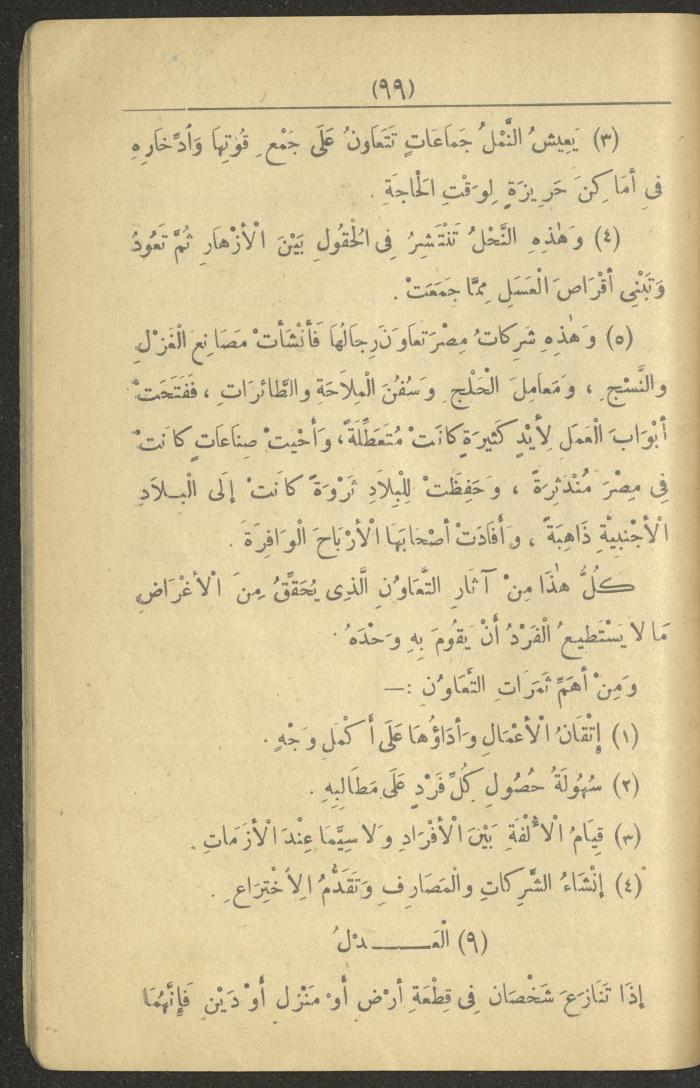 (٩٩)
(٣) يَعِيشُ النَّمْلُ جَمَاعَاتٍ تَتَعَاوَنُ عَلَى جَمْعِ قُوتِهَا وَادِّخَارِهِ
فِي أَمَاكِنَ حَرِيزَةٍ لِوَقْتِ الْحَاجَةِ .
(٤) وَهٰذِهِ النَّحْلُ تَنْتَشِرُ فِي الْحُقُولِ بَيْنَ الْأَزْهَارِ ثُمَّ تَعُودُ
وَتَبْنِي أَقْرَاصَ الْعَسَلِ مِمَّا جَمَعَتْ .
(٥) وَهٰذِهِ شَرِكَاتُ مِصْرَ تَعَاوَنَ رِجَالُهَا فَأَنْشَأَتْ مَصَانِعَ الْغَزْلِ
والنَّسْجِ ، وَمَعَامِلَ الْحَلْجِ وَسُفُنَ الْمِلَاحَةِ والطَّائرَاتِ ، فَفَتَحَتْ
أَبْوَابَ الْعَمَلِ لِأَيْدٍ كَثِيرَةٍ كَانَتْ مُتَعَطِّلَةً ، وَأَحْيَتْ صِنَاعَاتٍ كَانَتْ
فِي مِصْرَ مُنْدَثِرَةً ، وَحَفِظَتْ لِلْبِلَادِ ثَرْوَةً كَانَتْ إلَى الْبِلَادِ
الْأَجْنَبِيَّةِ ذَاهِبَةً ، وَأَفَادَتْ أَصْحَابَهَا الْأَرْبَاحَ الْوَافِرَةَ .
كُلُّ هٰذَا مِنْ آثَارِ التَّعَاوُنِ الَّذِى يُحَقِّقُ مِنَ الْأَغْرَاضِ
مَا لا يَسْتَطِيعُ الْفَرْدُ أَنْ يَقُومَ بِهِ وَحْدَهُ .
وَمِنْ أَهَمِّ ثَمَرَاتِ التَّعَاوُنِ :—
(١) إِتْقَانُ الْأَعْمَالِ وَأَدَاؤُهَا عَلَى أَكْمَلِ وَجْهٍ .
(٢) سُهُولَةُ حُصُولِ كُلِّ فَرْدٍ عَلَى مَطَالِبِهِ .
(٣) قِيَامُ الْأُلْفَةِ بَيْنَ الْأَفْرَادِ وَلَا سِيَّمَا عِنْدَ الْأَزَمَاتِ .
(٤) إِنْشَاءُ الشَّرِكَاتِ والْمَصَارِفِ وَتَقَدُّمُ الِاخْتِرَاعِ .
(٩) الْعَــــدْلُ
إِذَا تَنَازَعَ شَخْصَانِ فِي قِطْعَةِ أَرْضٍ أَوْ مَنْزِلٍ أَوْ دَيْنٍ فَإِنَّهُمَا